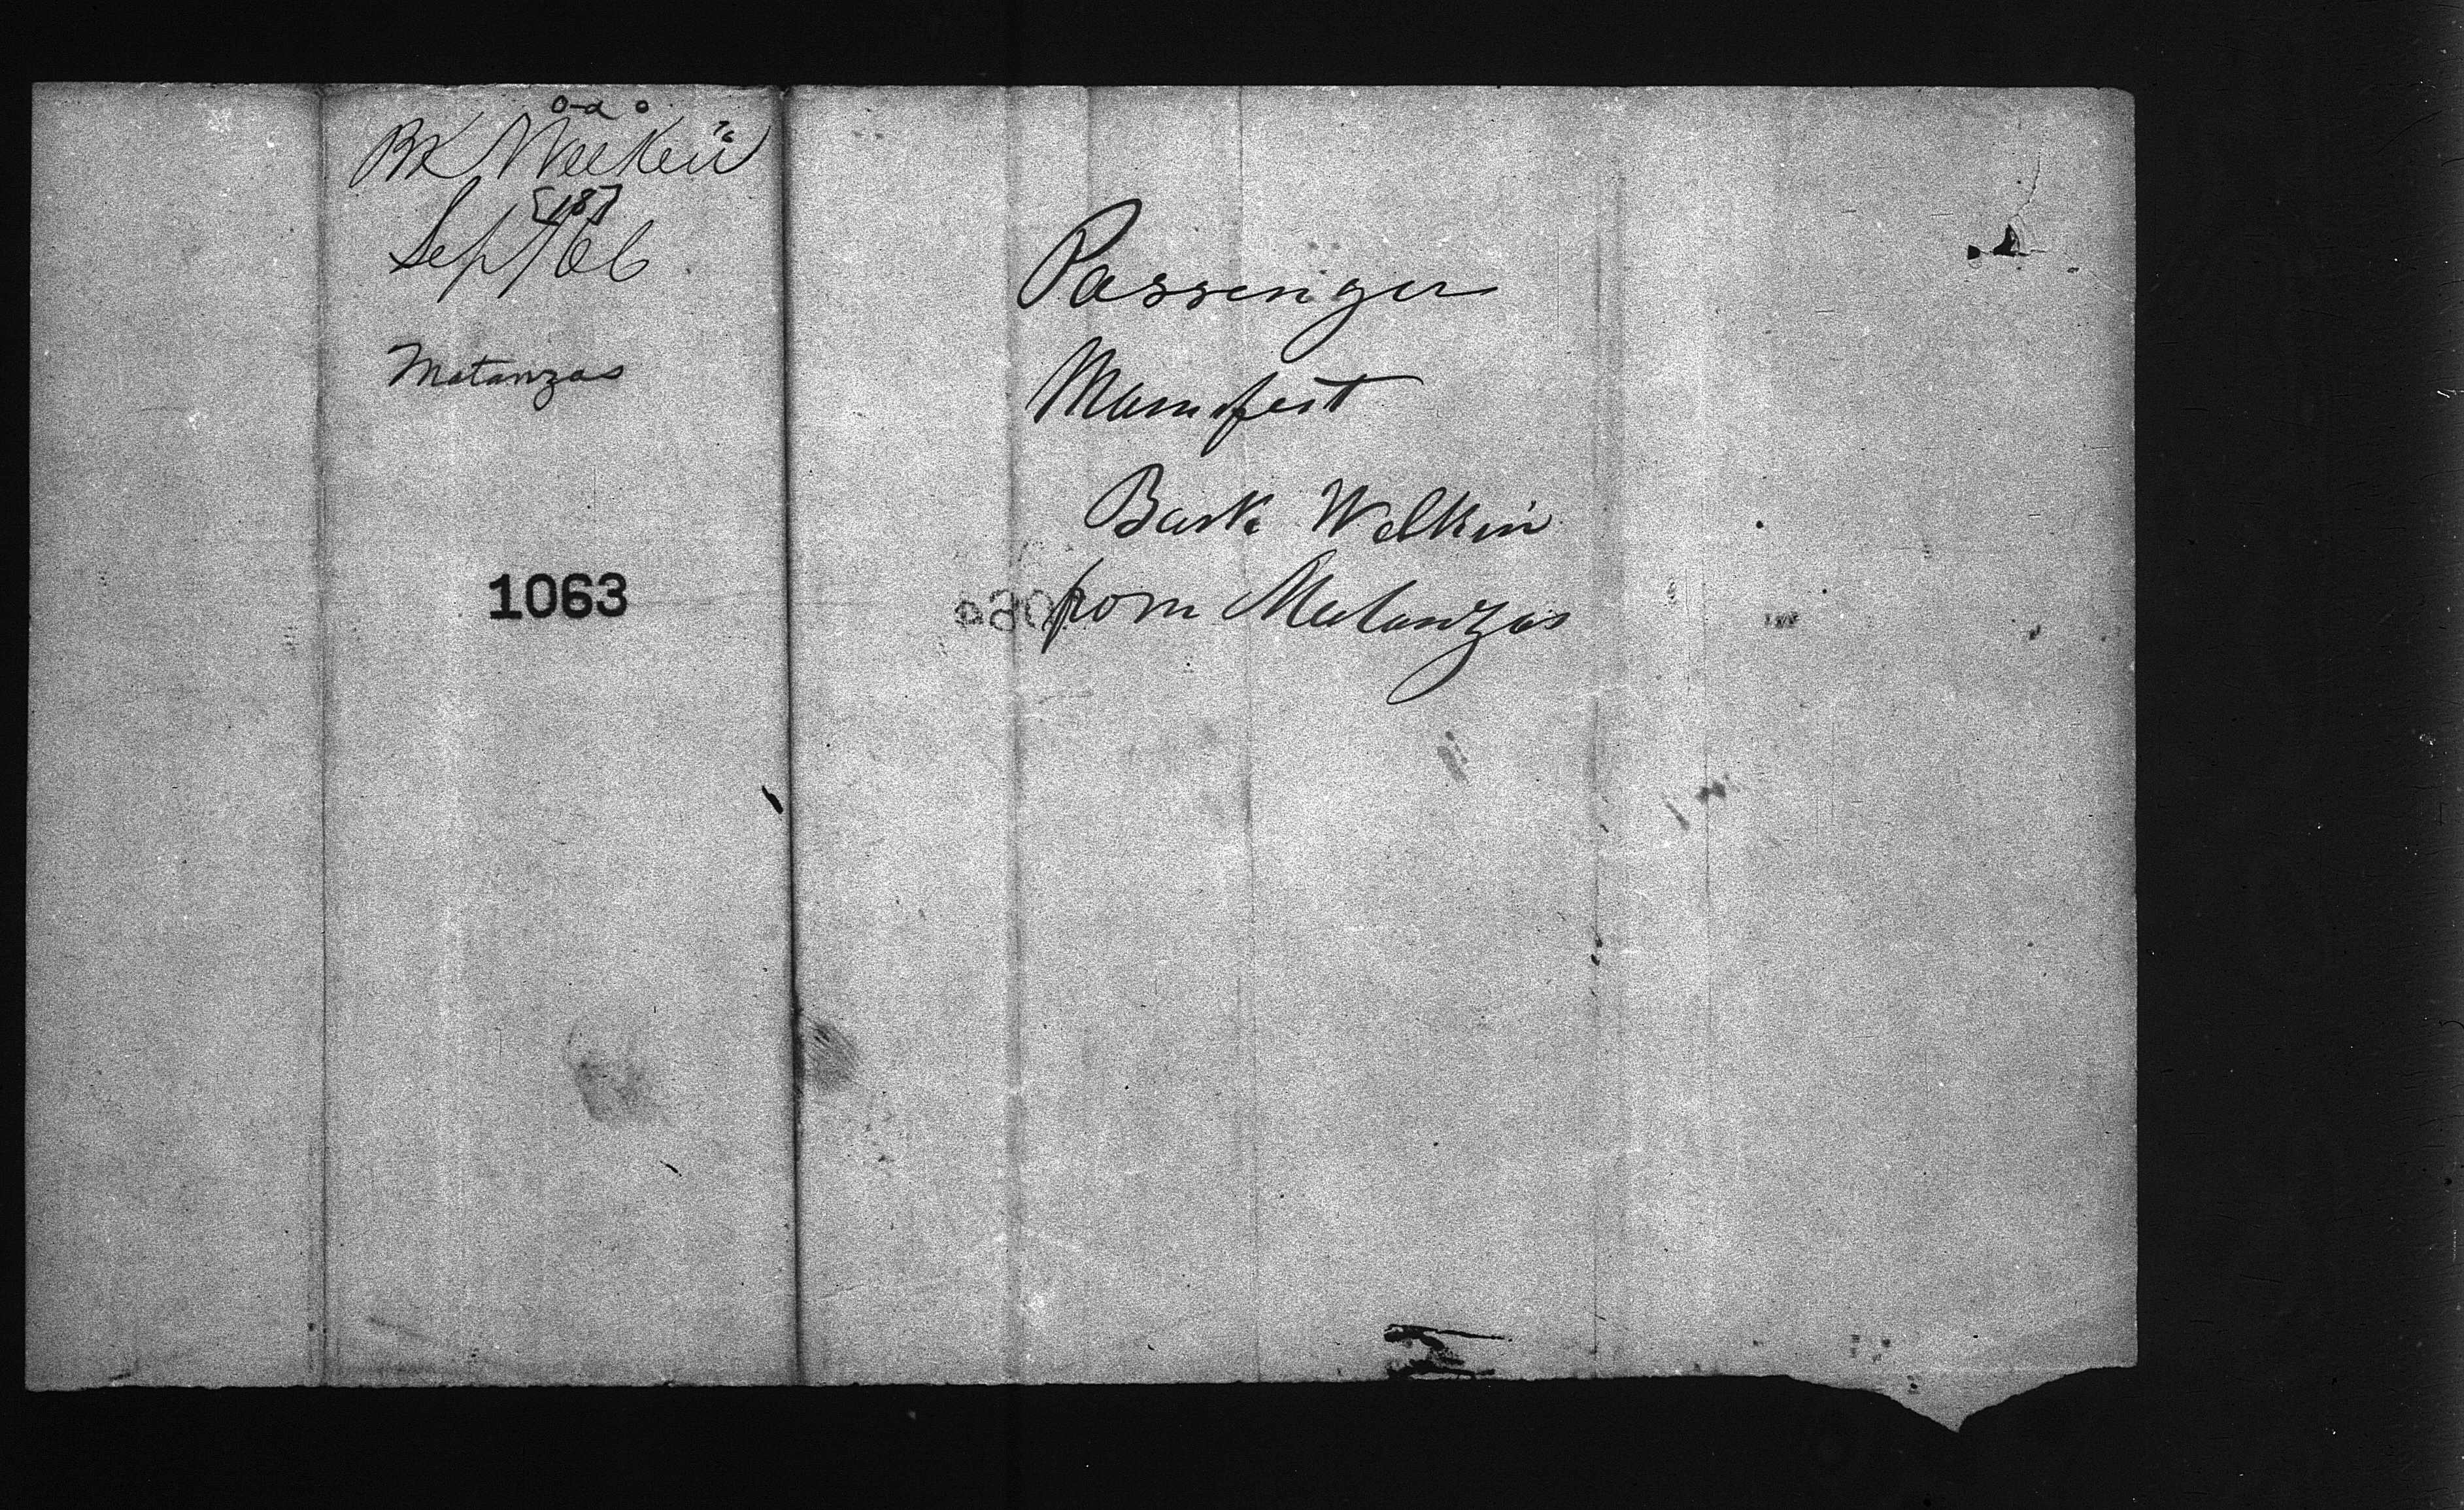 Bk Welkin
[18]
Sept/66
Matanzas
1063
Passenger
Manifest
Bark Welkin
from Matanzas